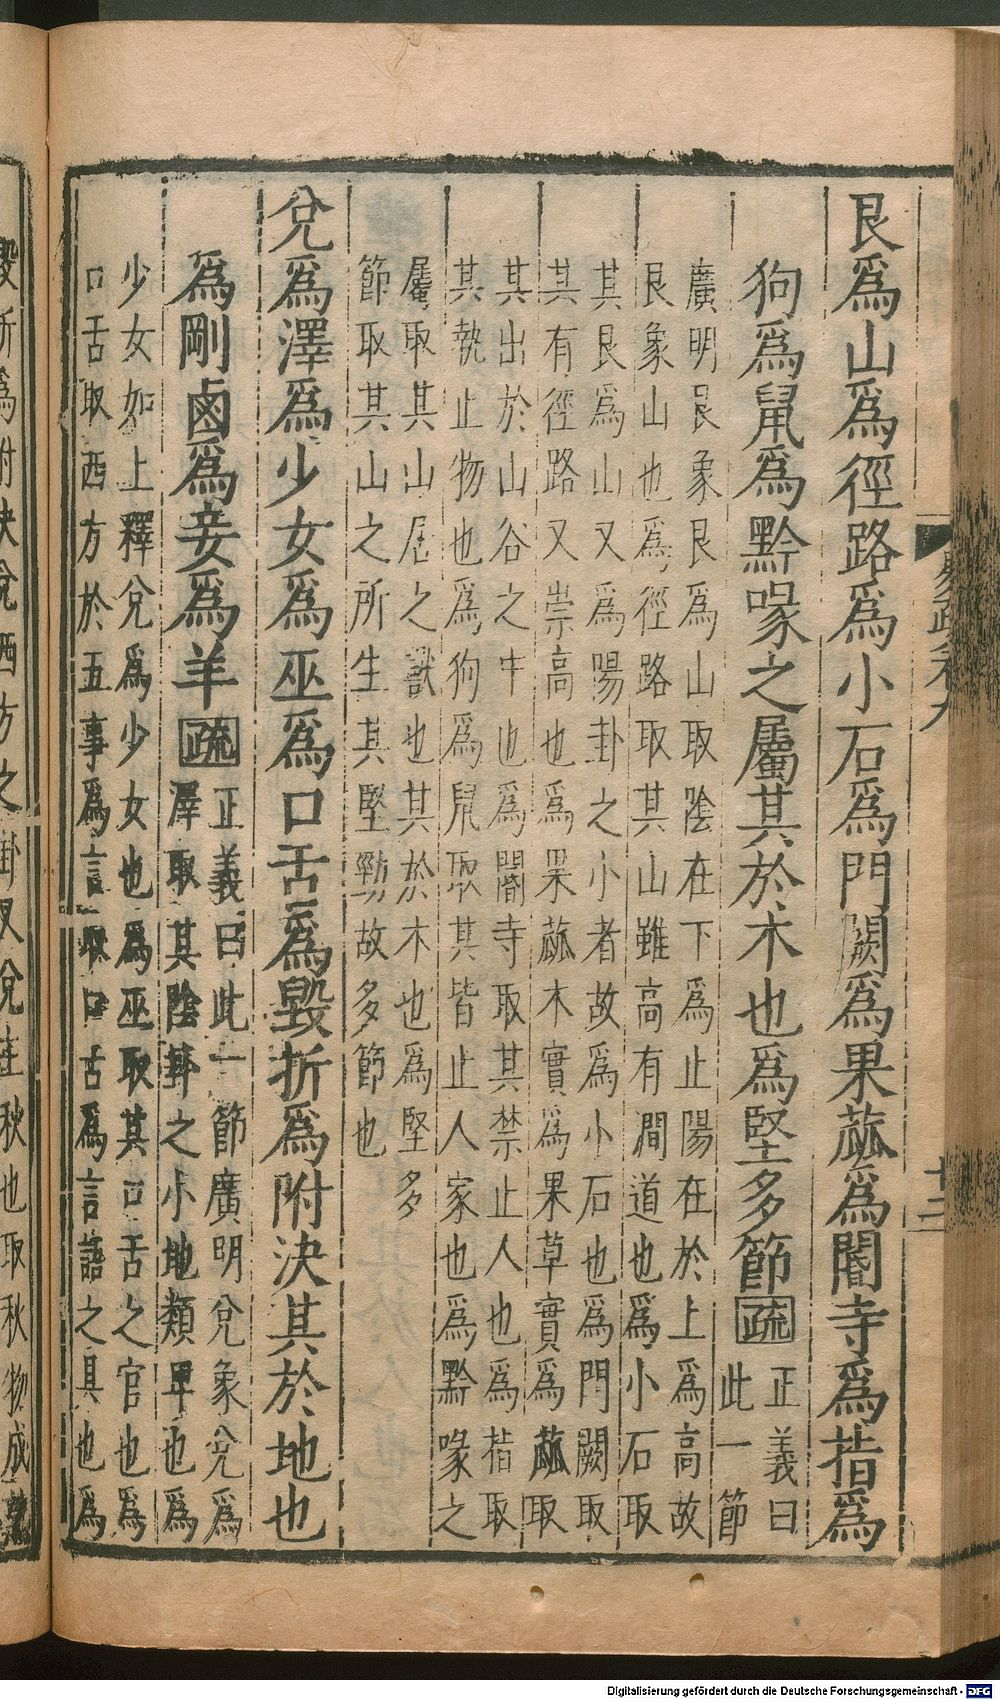 艮爲山爲徑路爲小石爲門闕爲果蓏爲閽寺爲指爲
狗爲鼠爲黔喙之屬其於木也爲堅多節疏正義曰
此一節
廣明艮象艮爲山取陰在下爲止陽在於上爲高故
艮象山也爲徑路取其山雖高有澗道也爲小石取
其艮爲山又爲陽卦之小者故爲小石也爲門闕取
其有徑路又崇高也爲果蓏木實爲果草實爲蓏取
其出於山谷之中也爲閽寺取其禁止人也爲指取
其執止物也爲狗爲鼠取其皆止人家也爲黔喙之
屬取其山居之獸也其於木也爲堅多
節取其山之所生其堅勁故多節也
兌爲澤爲少女爲巫爲口舌爲毀折爲附決其於地也
爲剛鹵爲妾爲羊疏正義曰此一節廣明兌象兌爲
澤取其陰卦之小地類卑也爲
少女如上釋兌爲少女也爲巫取其口舌之官也爲
口舌取西方於五事爲言取口舌爲言語之具也爲
毀折爲附決兌西方之卦又兌主秋也取秋物成熟
易疏卷九
Digitalisierung gefördert durch die Deutsche Forschungsgemeinschaft - DFG